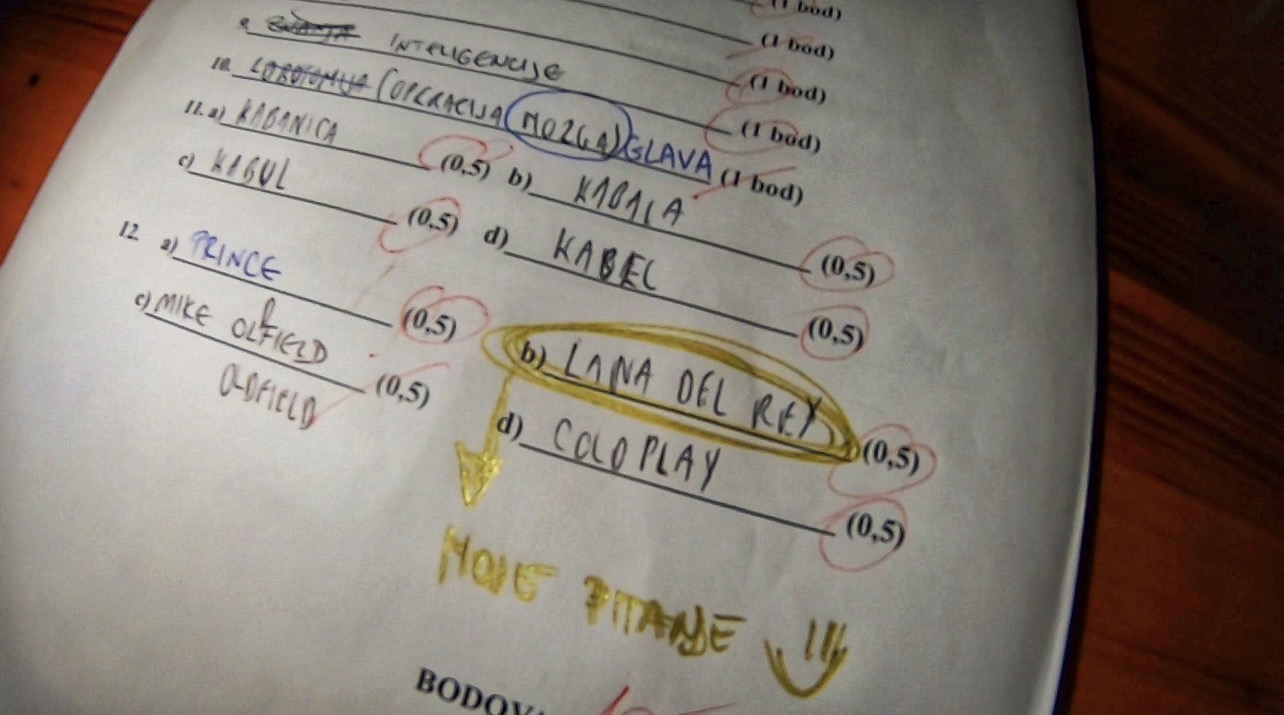 (1 bod)
(1 bod)
(1 bod)
9. INTELIGENCIJE (1 bod)
10. LOBOTOMIJA (OPERACIJA MOZGA) GLAVA (1 bod)
11. a) KABANICA (0,5) b) KABALA (0,5)
c) KABUL (0,5) d) KABEL (0,5)
12 a) PRINCE (0,5) b) LANA DEL REY (0,5)
c) MIKE OLFIELD (0,5) d) COLDPLAY (0,5)
OLDFIELD
MOJE PITANJE !!!